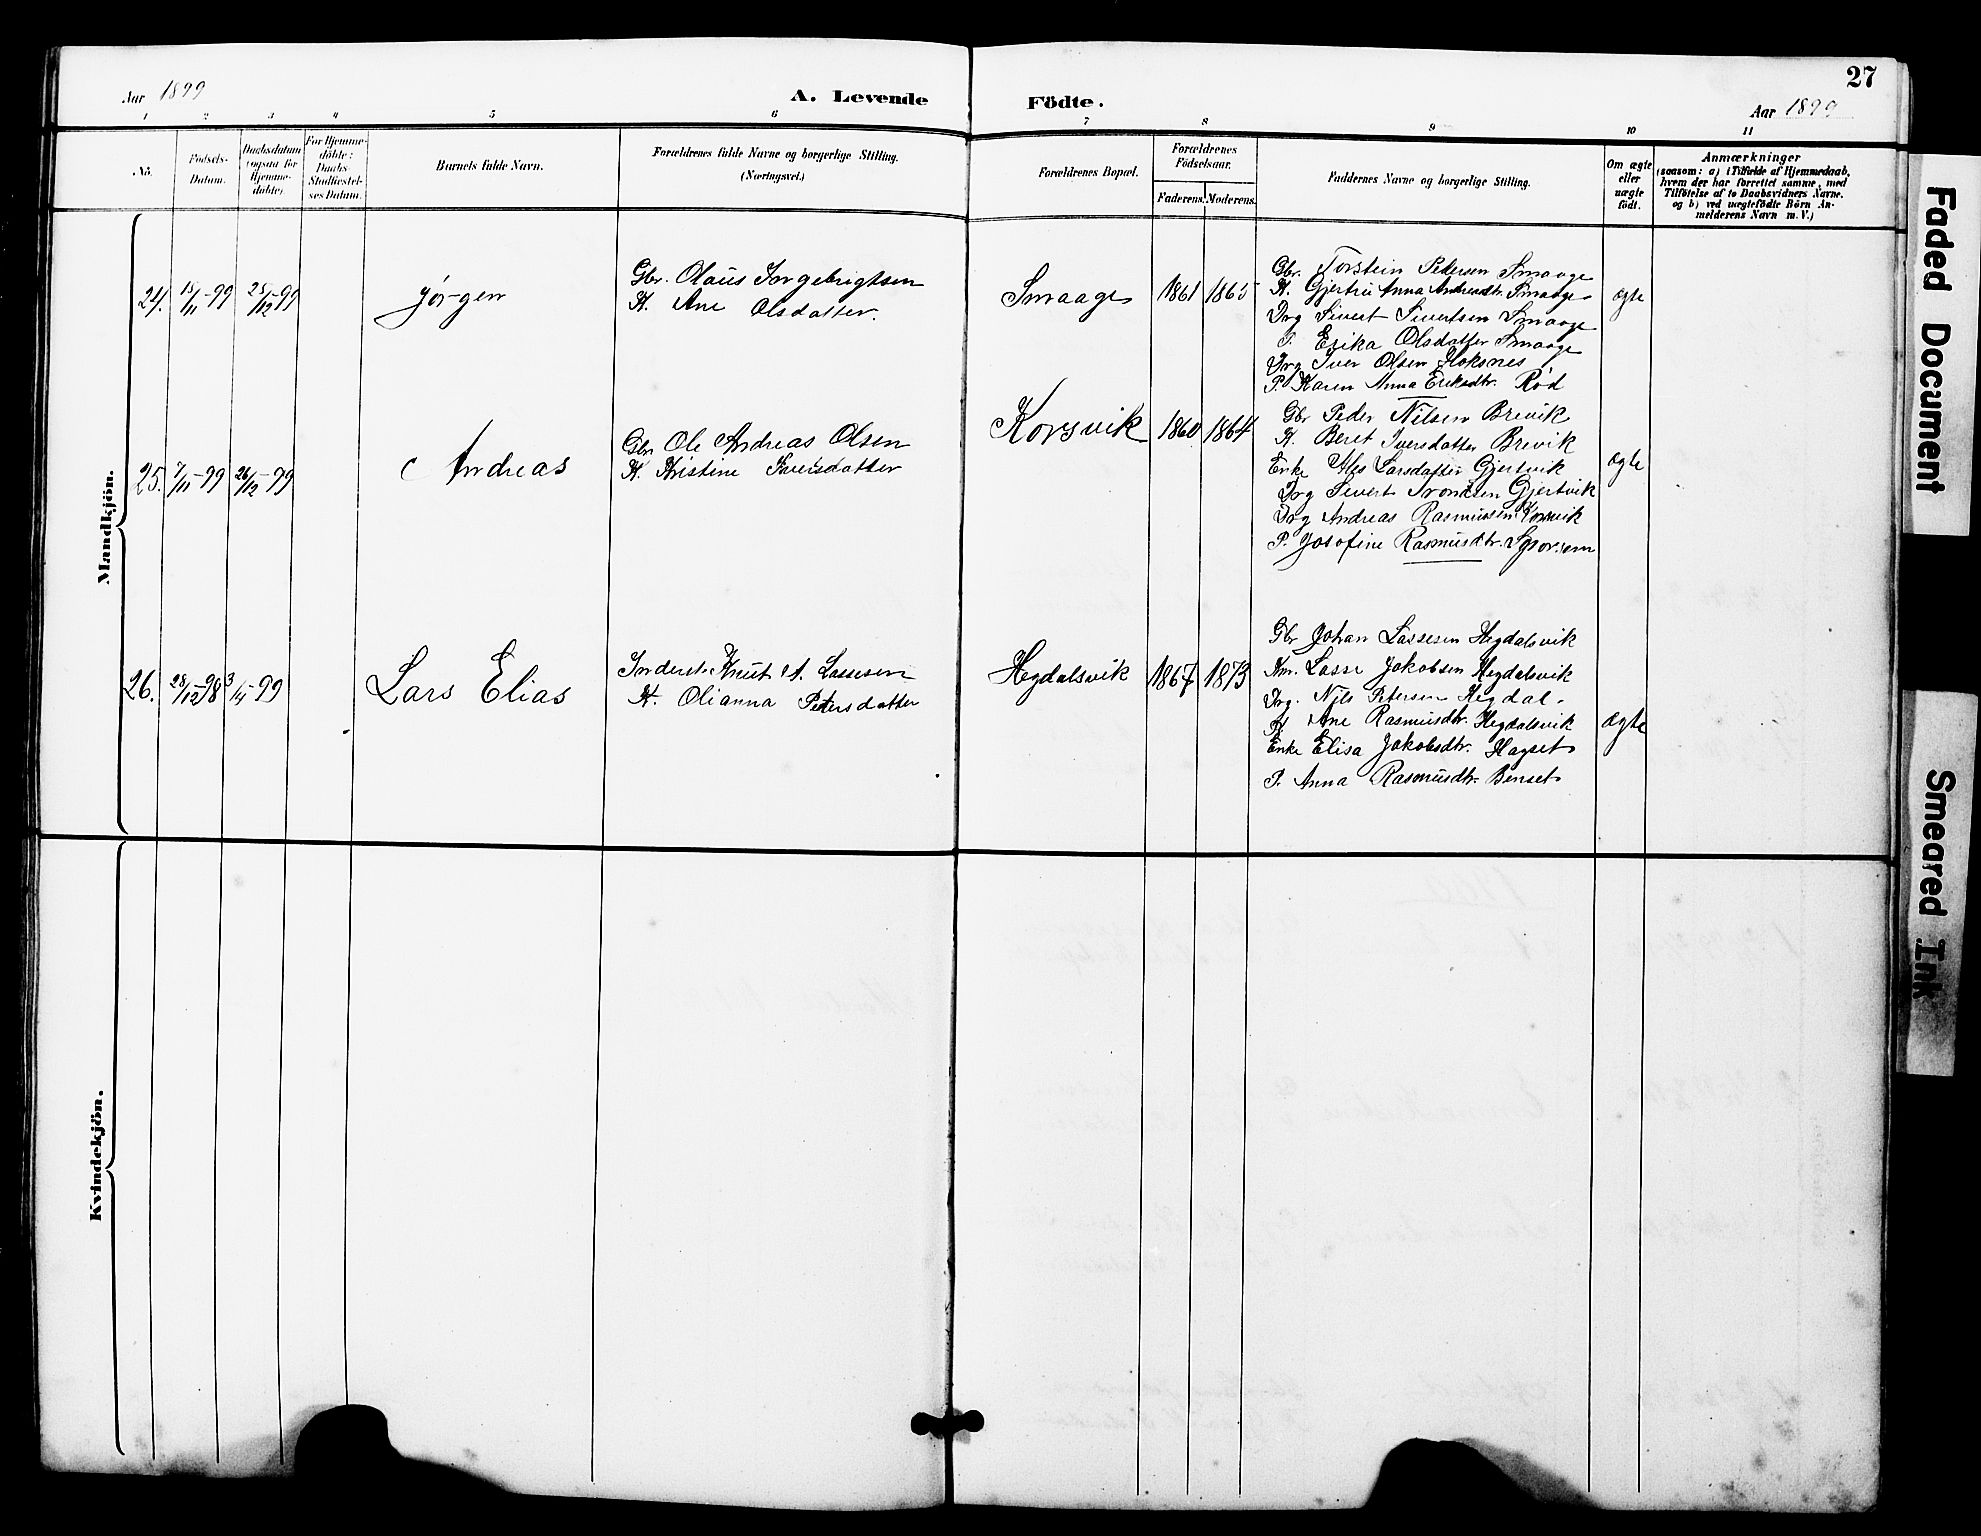 27
Aar 1899 A. Levende Födte. Aar 1899
1 2 3 4 5 6 7 8 9 10 11
No.
Födsels-
Datum.
Daabsdatum
(ogsaa for
Hjemme-
döbte)
For Hjemme-
döbte:
Daabs
Stadfæstel-
ses Datum.
Barnets fulde Navn.
Forældrenes fulde Navne og borgerlige Stilling.
(Næringsvei.)
Forældrenes Bopæl.
Forældrenes
Födselsaar.
Faderens. Moderens.
Faddernes Navne og borgerlige Stilling.
Om ægte
eller
uægte
födt.
Anmærkninger
(saasom: a) i Tilfælde af Hjemmedaab,
hvem der har forrettet samme, med
Tilföielse af to Daabsvidners Navne.
og b) ved uægtefödte Börn An-
melderens Navn m. V.)
Mandkjön.
24. 15/11-99 25/12-99 Jørgen
Gbr. Olaus Ingebrigtsen
H. Ane Olsdatter.
Smaage 1861 1865
Gbr. Torstein Pedersen Smaage
H. Gjertru Anna Andreasdtr. Smaage
Drg Sivert Sivertsen Smaage
P. Erika Olsdatter Smaage
Drg Iver Olsen Hoksnes
P. Karen Anna Eriksdtr. Rød
ægte
25. 7/11-99 26/12-99 Andreas
Gbr Ole Andreas Olsen
H. Kristine Iversdatter
Korsvik 1860 1864
Gbr Peder Nilsen Brevik
H. Beret Iversdatter Brevik
Enke Larsdatter Gjertvik
Drg Sivert Gjertvik
Drg Andreas Rasmussen Korsvik
P. Josefine Rasmusdtr.
ægte
26. 28/12-98 3/4-99 Lars Elias
Inderst Knut A. Lassesen
H. Olianna Petersdatter
Hegdalsvik 1867 1873
Gbr Johan Lassesen Hegdalsvik
Lasse Jakobsen Hegdalsvik
Drg. Nils Petersen Hegdal.
H Ane Rasmusdtr. Hegdalsvik
Enke Elisa Jakobsdtr. Hagset
P. Anna Rasmusdtr. Benset
ægte
Kvindekjön.
Faded Document
Smeared Ink